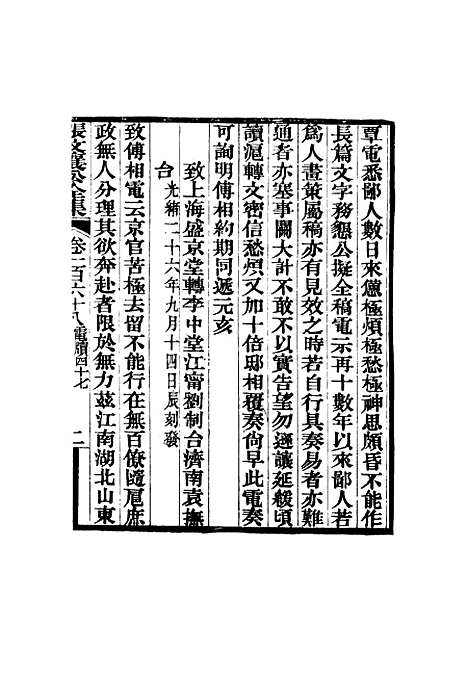 覃電悉鄙人數日來憊極煩極愁極神思頗昏不能作
長篇文字務懇公擬全稿電示再十數年以來鄙人若
爲人畫策屬稿亦有見效之時若自行具奏易者亦難
通者亦塞事關大計不敢不以實告望勿遜讓延緩頃
讀滬轉文密信愁煩又加十倍邸相覆奏尙早此電奏
可詢明傅相約期同遞元亥
致上海盛京堂轉李中堂江甯劉制台濟南袁撫
台光緒二十六年九月十四日辰刻發
致傅相電云京官苦極去留不能行在無百僚隨扈庶
政無人分理其欲奔赴者限於無力茲江南湖北山東
張文襄公全集 卷一百六十八 電牘四十七 二